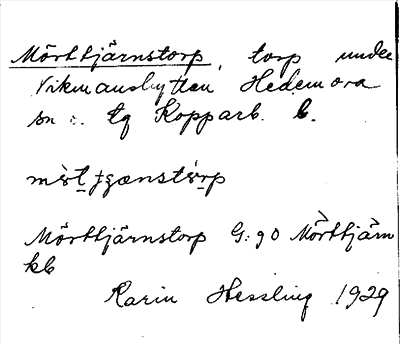 Mörttjärnstorp, torp under
Vikmanshyttan Hedemora
sn o. tg Kopparb. l.
Mörttjärnstorp G:90 Mörttjärn
kb
Karin Hessling 1929